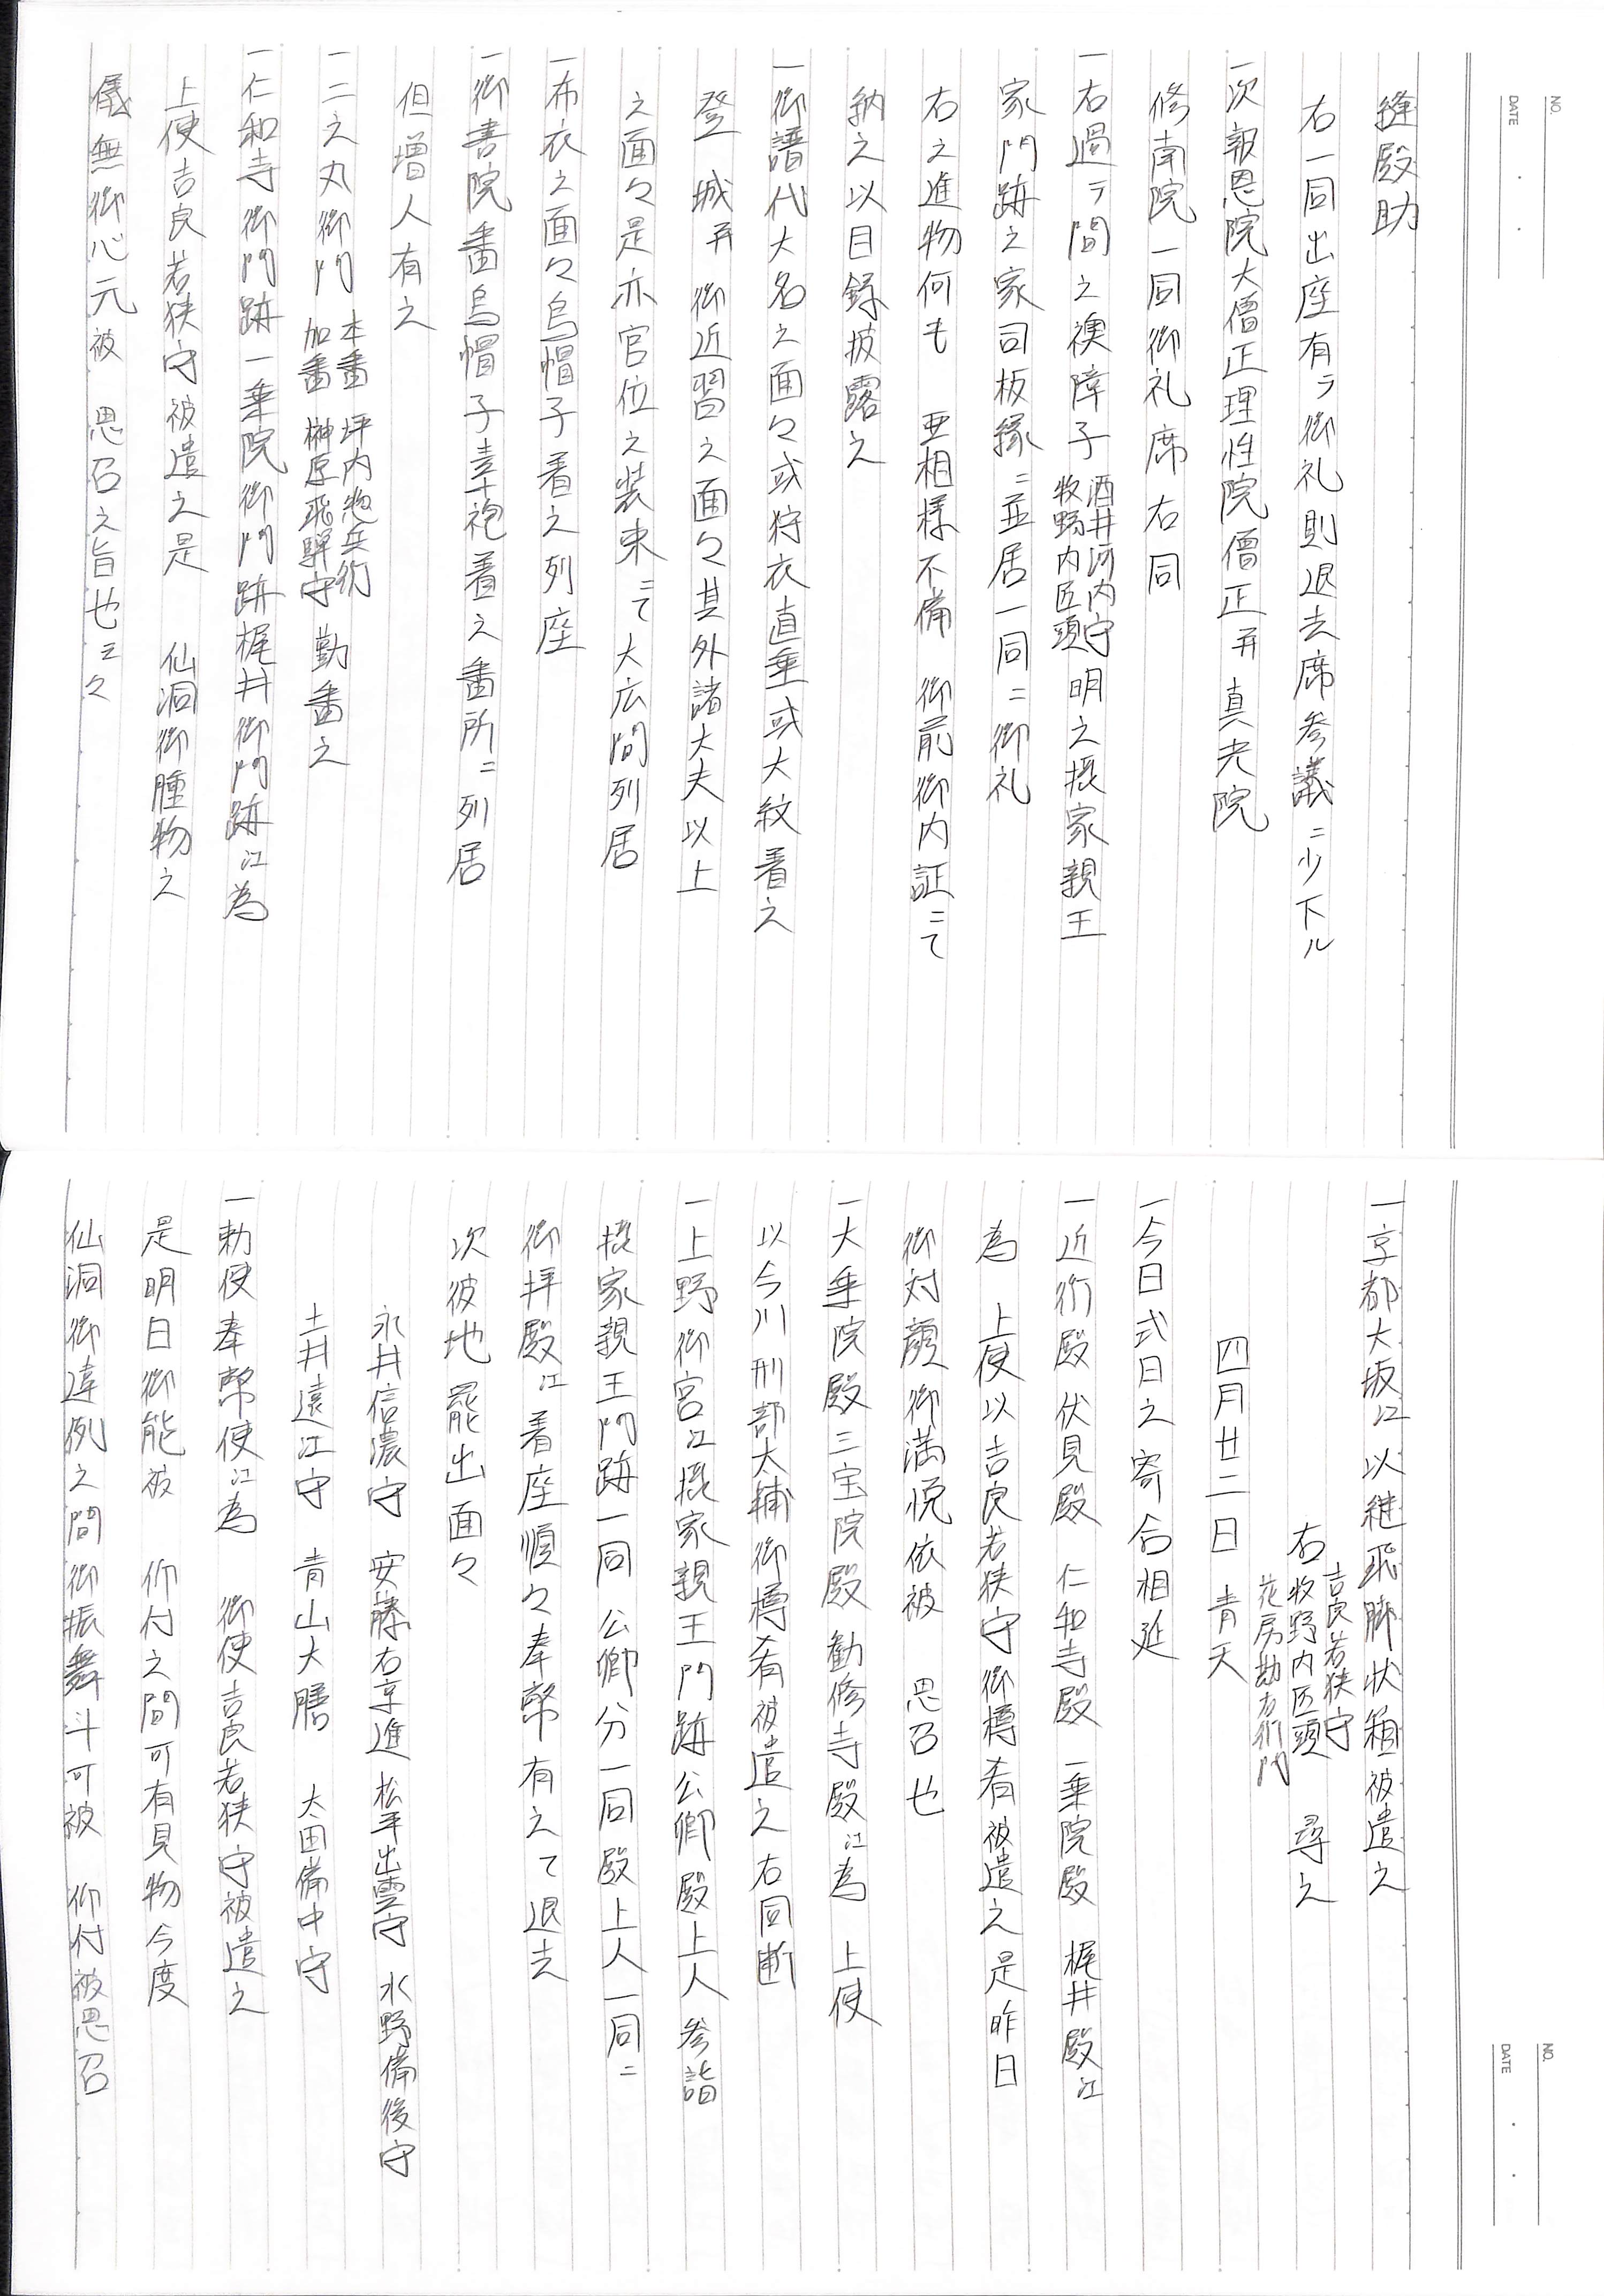 NO.
DATE
縫殿助
右一同出座有テ御礼則退去席参議ニ少下ル
一次報恩院大僧正理性院僧正并真光院
修南院一同御礼席右同
一右過テ間之襖障子 酒井河内守 牧野内匠頭 明之摂家親王
家門跡之家司板縁ニ並居一同ニ御礼
右之進物何も 亜相様不備 御前御内証ニて
納之以目録披露之
一御譜代大名之面々或狩衣直垂或大紋着之
登 城并 御近習之面々其外諸大夫以上
之面々是亦官位之装束ニて大広間列居
一布衣之面々烏帽子着之列座
一御書院番烏帽子素袍着之番所ニ列居
但増人有之
一二之丸御門 本番 坪内惣兵衛 加番 榊原飛騨守 勤番之
一仁和寺御門跡一乗院御門跡梶井御門跡江為
上使吉良若狭守被遣之是 仙洞御腫物之
儀無御心元被 思召之旨也云々
NO.
DATE
一京都大坂江以継飛脚状箱被遣之
右 吉良若狭守 牧野内匠頭 花房勘右衛門 尋之
四月廿二日 青天
一今日式日之寄合相延
一近衛殿 伏見殿 仁和寺殿 一乗院殿 梶井殿江
為 上使以吉良若狭守御樽肴被遣之是昨日
御対顔御満悦依被 思召也
一大乗院殿三宝院殿勧修寺殿江為 上使
以今川刑部大輔御樽肴被遣之右同断
一上野御宮江摂家親王門跡公卿殿上人参詣
摂家親王門跡一同 公卿分一同殿上人一同ニ
御拝殿江着座順々奉幣有之て退去
次彼地罷出面々
永井信濃守 安藤右京進 松平出雲守 水野備後守
土井遠江守 青山大膳 太田備中守
一勅使奉幣使江為 御使吉良若狭守被遣之
是明日御能被 仰付之間可有見物今度
仙洞御違例之間御振舞斗可被 仰付被思召